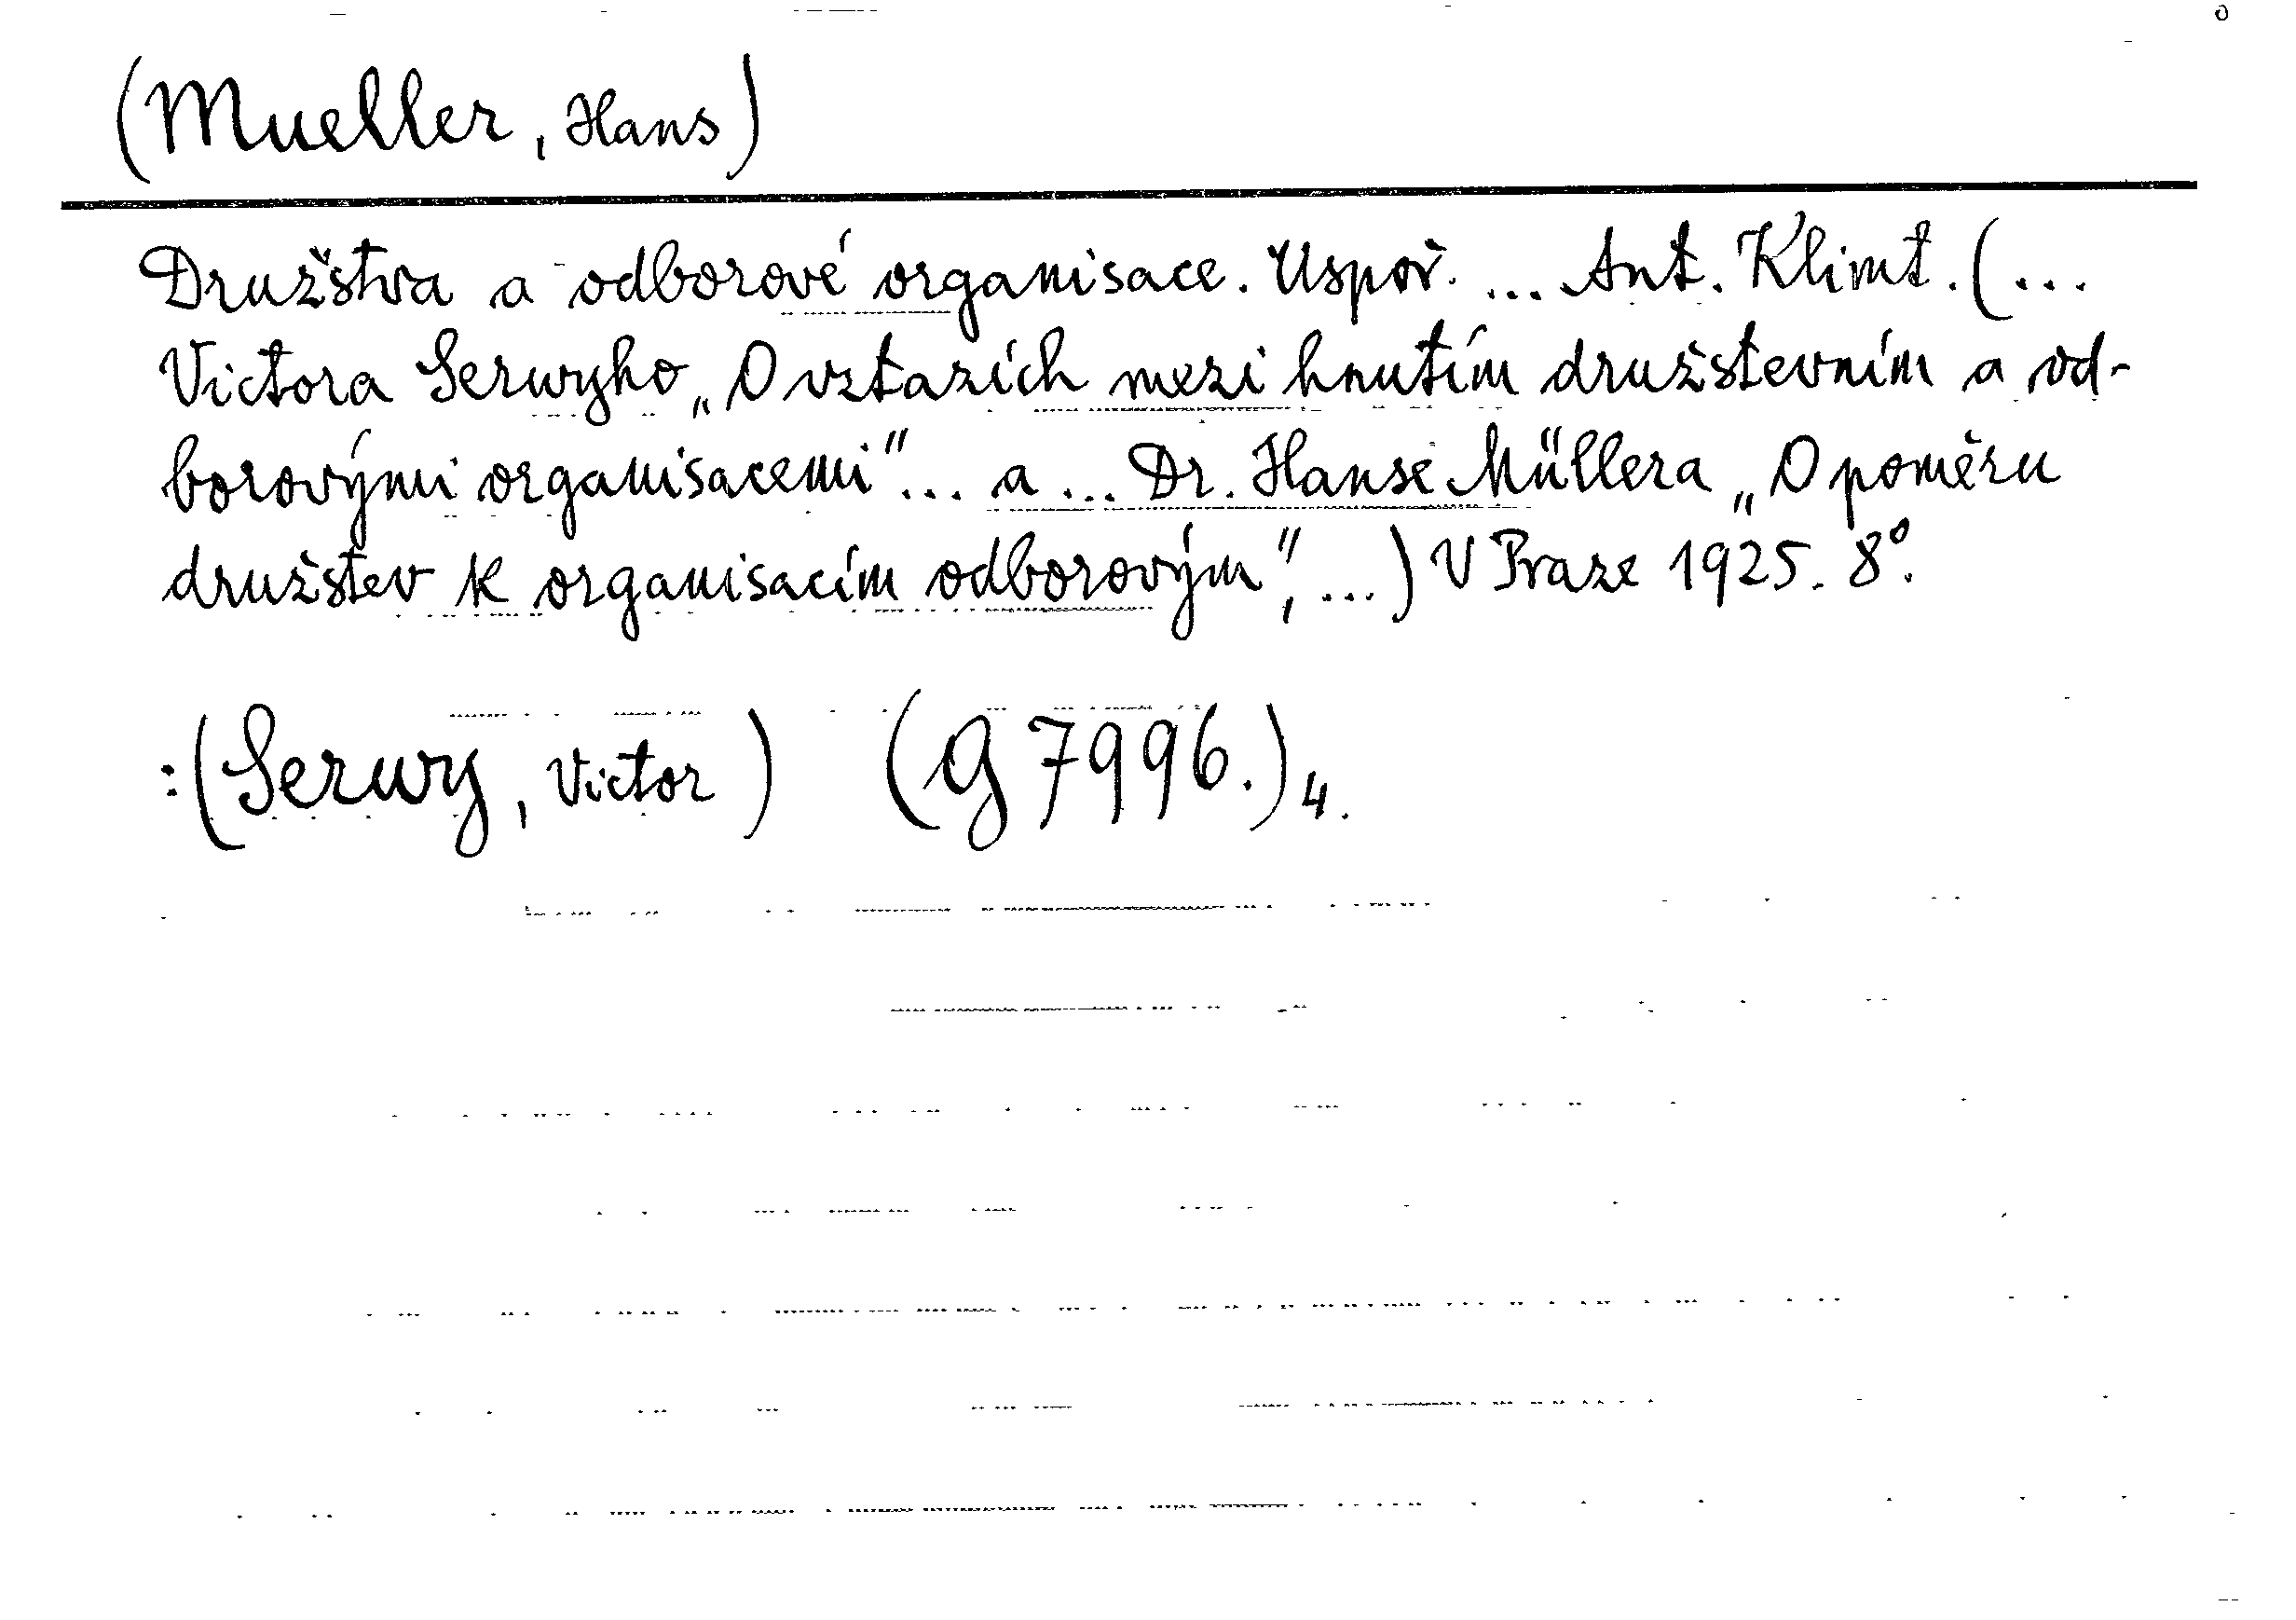 (Mueller, Hans)
Družstva a odborové organisace. Uspoř. ... Ant. Klimt. (...
Victora Serwyho „O vztazích mezi hnutím družstevním a od-
borovými organisacemi“... a ... Dr. Hanse Müllera „O poměru
družstev k organisacím odborovým“, ...) V Praze 1925. 8°.
:(Serwy, Victor) (G 7996.)4.